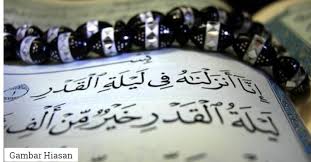 إِنَّا أَنزَلْنَٰهُ فِى لَيْلَةِ ٱلْقَدْرِ
لَيْلَةُ ٱلْقَدْرِ خَيْرٌ مِّنْ أَلْفِ
Gambar Hiasan